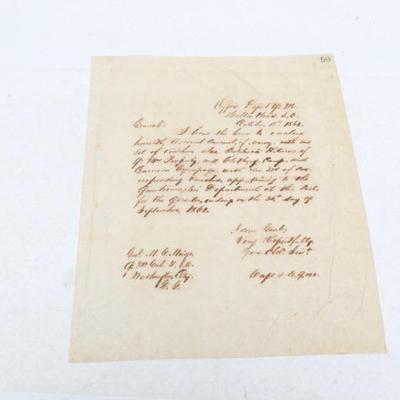 50
Office Dept Qr. Mr.
Hilton Head S.C.
October 10th 1862.
General:
I have the honor to enclose
herewith Account Current of money, with one
set of Vouchers also Return of
Qr. Mrs Property, and Clothing, Camp and
Garrison Equipage, with one set of
appertaining to the
Quartermasters Department at this Post
for the Quarter ending on the 30th day of
September 1862.
I am Genl.
Very Respectfully
Your Obt. Servt.
Genl. M. C. Meigs
Qr. Mr. Genl. U.S.A.
Washington City
D. C.
Capt. & A.Q.M.